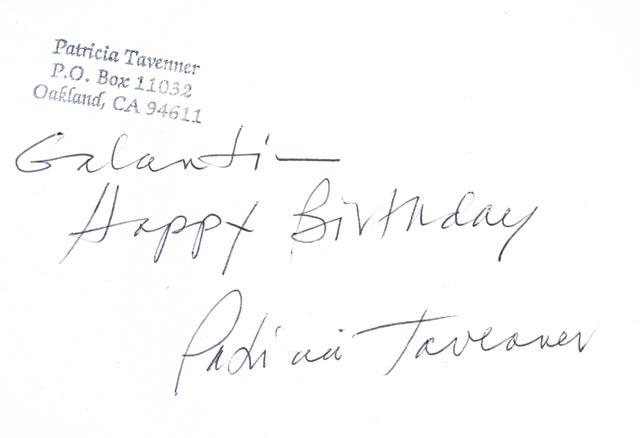 Patricia Tavenner
P.O. Box 11032
Oakland, CA 94611
Galanti—
Happy Birthday
Patricia Tavenner